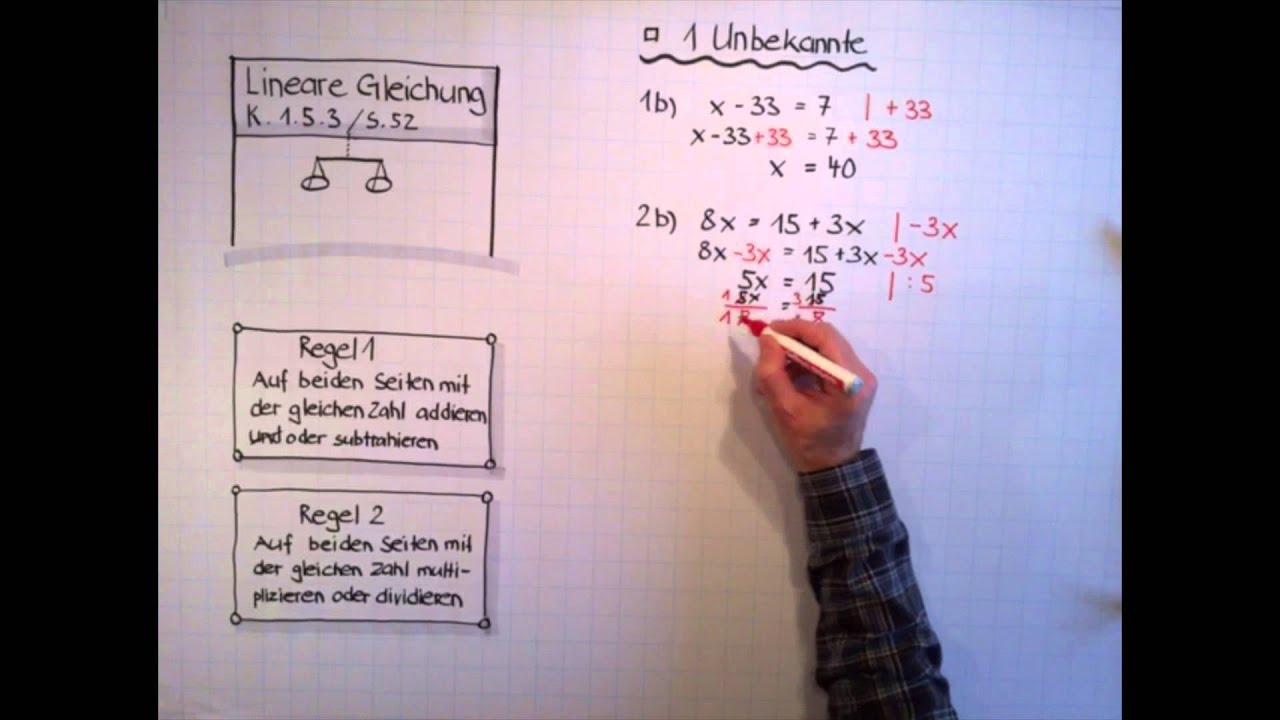 Lineare Gleichung
K. 1.5.3 / S.52
Regel 1
Auf beiden Seiten mit
der gleichen Zahl addieren
und oder subtrahieren
Regel 2
Auf beiden Seiten mit
der gleichen Zahl multi-
plizieren oder dividieren
1 Unbekannte
1b) x - 33 = 7 | + 33
x - 33 + 33 = 7 + 33
x = 40
2b) 8x = 15 + 3x | -3x
8x - 3x = 15 + 3x - 3x
5x = 15 | : 5
1 5x = 3 15
1